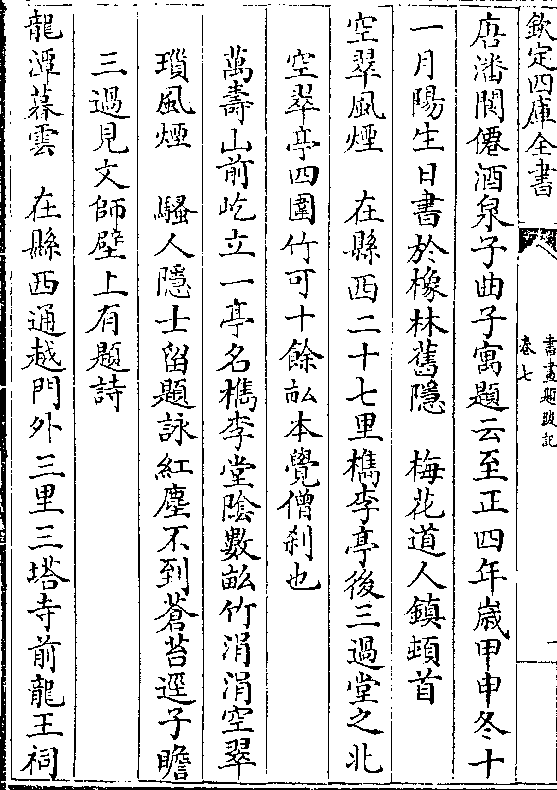 欽定四庫全書
書畫題跋記
卷七
唐潘閬僊酒泉子曲子寓題云至正四年嵗甲申冬十
一月陽生日書於橡林舊隱　梅花道人鎮頓首
空翠風煙　在縣西二十七里檇李亭後三過堂之北
空翠亭四圍竹可十餘畝本覺僧刹也
萬壽山前屹立一亭名檇李堂陰數畝竹涓涓空翠
瑣風煙　騷人隱士留題詠紅塵不到蒼苔逕子瞻
三過見文師壁上有題詩
龍潭暮雲　在縣西通越門外三里三塔寺前龍王祠